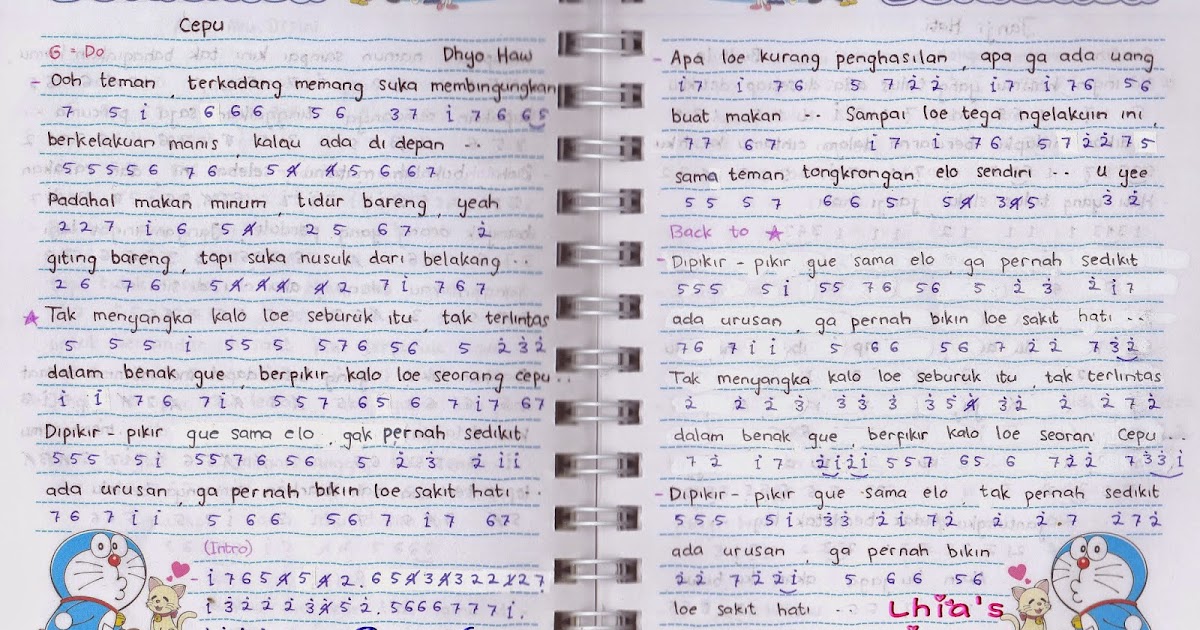 Cepu
6 = Do Dhyo Haw
- Ooh teman , terkadang memang suka membingungkan
7 5 i 6 6 6 5 6 3 7 i 7 6 6 5
berkelakuan manis kalau ada di depan ..
5 5 5 5 6 7 6 5 4̸ 4̸ 5 6 6 7
Padahal makan minum , tidur bareng , yeah
2 2 7 i 6 5 4̸ 2 5 6 7 2̇
giting bareng , tapi suka nusuk dari belakang ..
2 6 7 6 5 4̸ 4̸ 4̸ 4̸ 2 7 i 7 6 7
★ Tak menyangka kalo loe seburuk itu , tak terlintas
5 5 5 i 5 5 5 5 7 6 5 6 5 2̇ 3̇ 2̇
dalam benak gue , berpikir kalo loe seorang cepu ..
i i 7 6 7 i 5 5 7 6 5 6 7 i 7 6 7
Dipikir - pikir gue sama elo , gak pernah sedikit
5 5 5 5 i 5 5 7 6 5 6 5 2̇ 3̇ 2̇ i i
ada urusan , ga pernah bikin loe sakit hati ..
7 6 7 i i 5 6 6 5 6 7 i 7 6 7
(Intro)
- i 7 6 5 4̸ 5 4̸ 2 . 6 5 4̸ 3 4̸ 3 2 2 1̸ 2 7
i 3̇ 2̇ 2̇ 2̇ 3̇ 4̸ 5 2̇ . 5 6 6 6 7 7 7 i .
- Apa loe kurang penghasilan , apa ga ada uang
i 7 i 7 6 5 7 2̇ 2̇ i 7 i 7 6 5 6
buat makan .. Sampai loe tega ngelakuin ini ,
7 7 6 7 i 7 i 7 6 5 7 2̇ 2̇ 7 5
sama teman tongkrongan elo sendiri .. u yee
5 5 5 7 6 6 5 5 4̸ 3 4̸ 5 3̇ 2̇
Back to ★
- Dipikir - pikir gue sama elo , ga pernah sedikit
5 5 5 5 i 5 5 7 6 5 6 5 2̇ 3̇ 2̇ i 7
ada urusan , ga pernah bikin loe sakit hati ..
7 6 7 i i 5 6 6 5 6 7 2̇ 2̇ 7 3̇ 2̇
Tak menyangka kalo loe seburuk itu , tak terlintas
2̇ 2̇ 2̇ 3̇ 3̇ 3̇ 3̇ 3̇ 5 4̸ 3̇ 2̇ 2̇ 2̇ 7 2̇
dalam benak gue , berfikir kalo loe seoran cepu ...
7 2̇ i 7 2̇ i 2̇ i 5 5 7 6 5 6 7 2̇ 2̇ 7 3̇ 3̇ i
- Dipikir - pikir gue sama elo tak pernah sedikit
5 5 5 5 i 3̇ 3̇ 2̇ i 7 2̇ 2̇ 2̇ 7 2̇ 7 2̇
ada urusan , ga pernah bikin
2̇ 2̇ 7 2̇ 2̇ i 5 6 6 5 6
loe sakit hati ... Lhia's